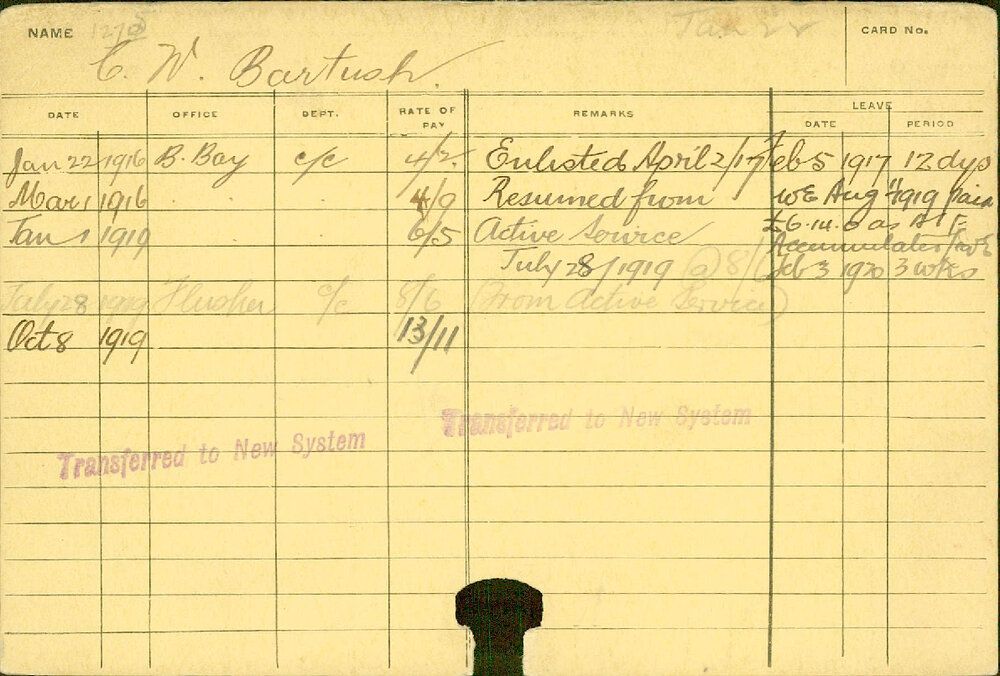 NAME 1273 Jan 22 CARD No.
C. W. Bartush.
DATE OFFICE DEPT. RATE OF PAY REMARKS LEAVE
DATE PERIOD
Jan 22 1916 B. Boy c/c 4/2. Enlisted April 2/17 Feb 5 1917 12 dys
Mar 1 1916 . . . 4/9 Resumed from W/E Aug 1919 paid
Jan 1 1919 . . 6/5 Active Service £6.14.0 as A.I.F.
Accumulated
July 28/1919 @ 8/ Feb 3 1920 3 wks
July 28 1919 Flusher c/c 8/6 (From Active Service)
Oct 8 1919 13/11
Transferred to New System
Transferred to New System